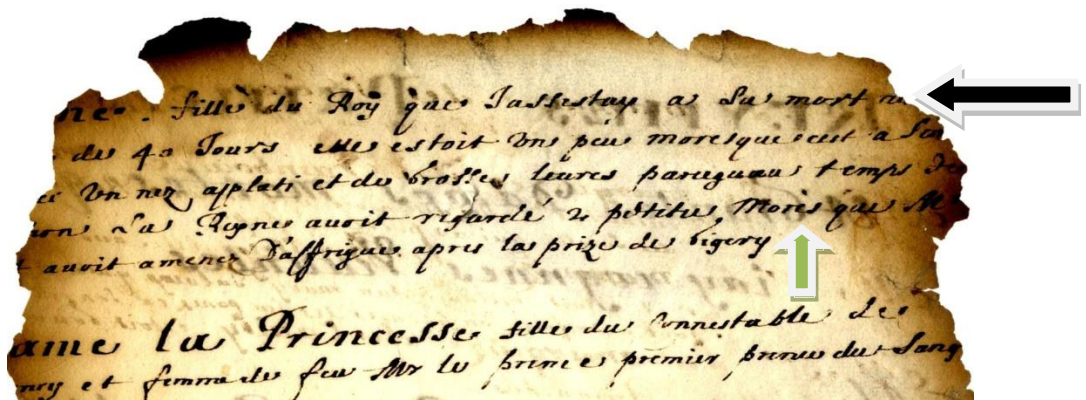 ne. fille du Roy que Jassestay a Sa mort
de 40 Jours elle estoit Une peu moresque cest a
Un nez applati et de Grosses leures parcequau temps
La Reyne auoit regardé 2 petites Mores que
auoit amenez Daffrique apres la prize de Gigery
ame la Princesse fille du Connestable de
et femme de feu Mr le prince premier prince du Sang